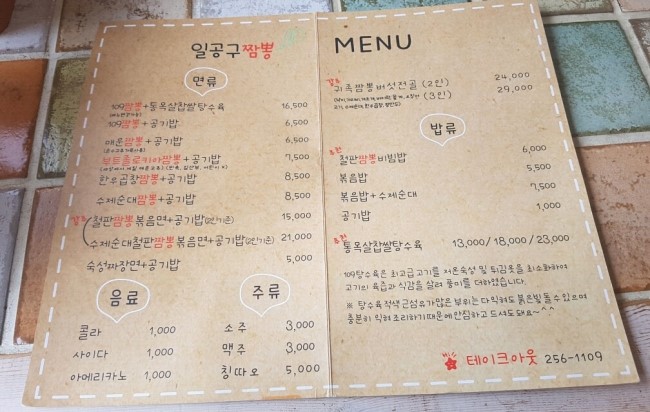 일공구짬뽕
면류
109짬뽕+통옥살찹쌀탕수육 16,500
109짬뽕+공기밥 6,500
매운짬뽕+공기밥 6,500
부트졸로키아짬뽕+공기밥 7,500
한우곱창짬뽕+공기밥 8,500
수제순대짬뽕+공기밥 8,500
철판짬뽕볶음면+공기밥(2인기준) 15,000
수제순대철판짬뽕볶음면+공기밥(2인기준) 21,000
숙성짜장면+공기밥 5,000
음료
콜라 1,000
사이다 1,000
아메리카노 1,000
주류
소주 3,000
맥주 3,000
칭따오 5,000
MENU
귀족짬뽕버섯전골 (2인) 24,000
(3인) 29,000
밥류
추천
철판짬뽕비빔밥 6,000
볶음밥 5,500
볶음밥+수제순대 7,500
공기밥 1,000
추천
통옥살찹쌀탕수육 13,000/18,000/23,000
109탕수육은 최고급고기를 저온숙성 및 튀김옷을 최소화하여
고기의 육즙과 식감을 살려 풍미를 더하였습니다.
※ 탕수육적색근섬유가많은 부위는 다익혀도 붉은빛돌수 있으며
충분히 익혀조리하기때문에안심하고 드셔도돼요~^^
테이크아웃 256-1109